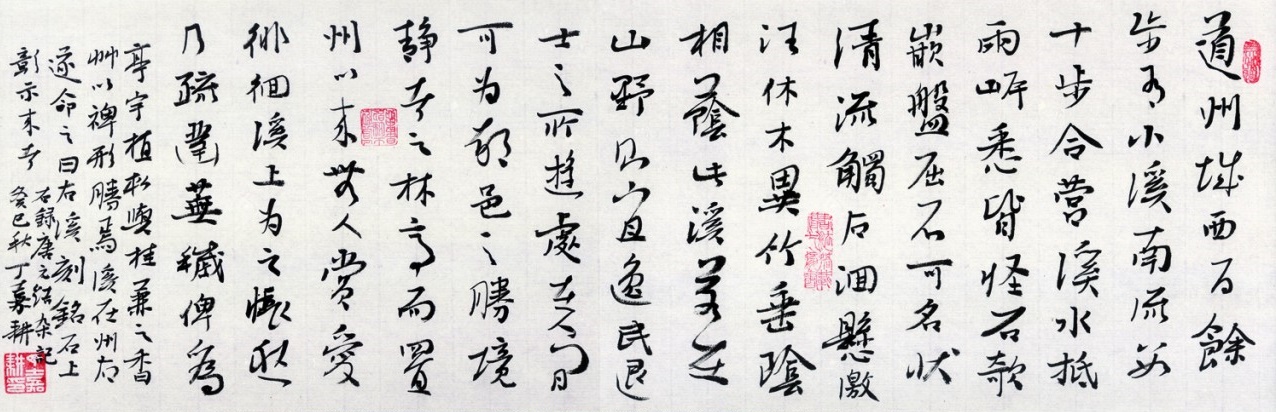 道州城西百餘
步有小溪南流數
十步合營溪水抵
兩岸悉皆怪石欹
嵌盤屈不可名狀
清流觸石洄懸激
注休木異竹垂陰
相蔭此溪若在
山野則宜逸民退
士之所遊處在人間
可為都邑之勝境
靜者之林亭而置
州以來無人賞愛
徘徊溪上為之悵然
乃疏鑿蕪穢俾為
亭宇植松與桂兼之香
艸以裨形勝焉溪在州右
遂命之曰右溪刻銘石上
彰示來者
右錄唐元結雜記
癸巳秋丁嘉耕